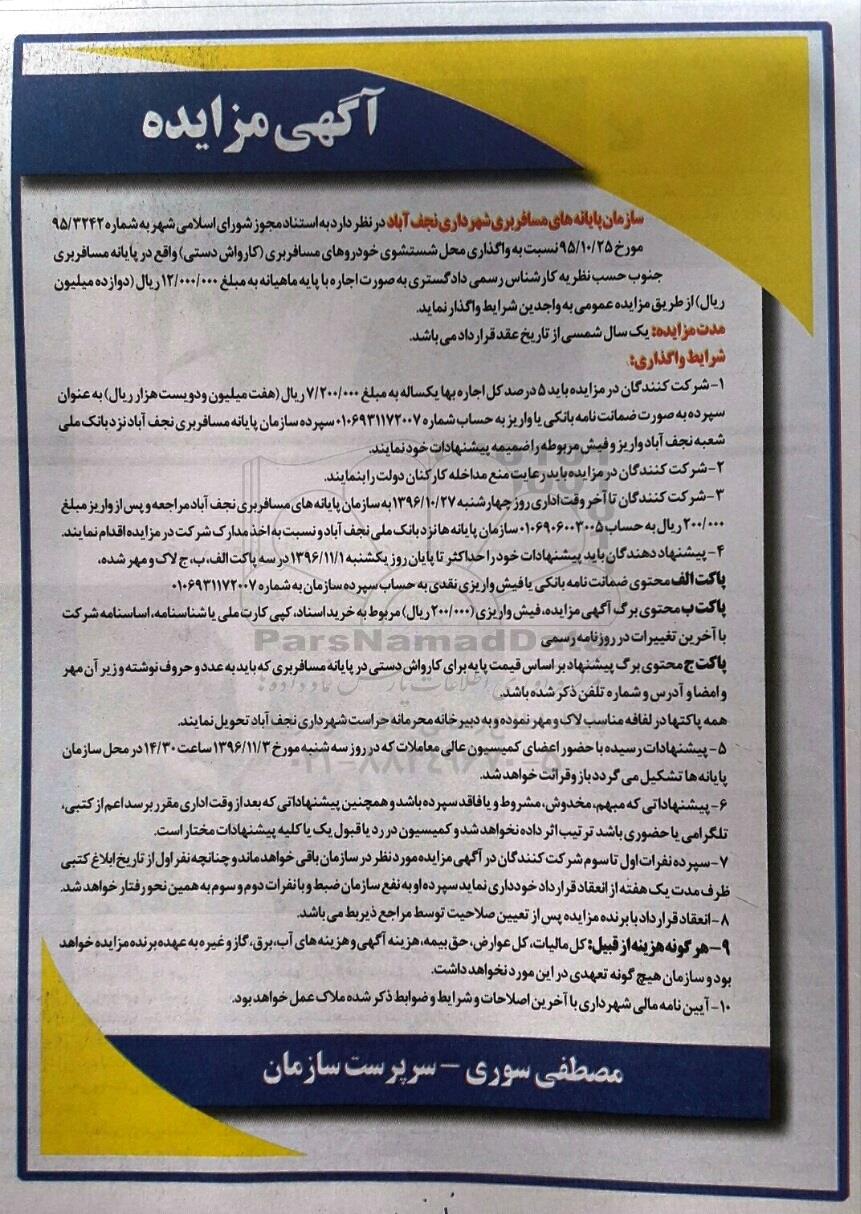 آگهی مزایده
سازمان پایانه های مسافربری شهرداری نجف آباد در نظر دارد به استناد مجوز شورای اسلامی شهر به شماره ۹۵/۳۲۴۲
مورخ ۹۵/۱۰/۲۵ نسبت به واگذاری محل شستشوی خودروهای مسافربری (کارواش دستی) واقع در پایانه مسافربری
جنوب حسب نظریه کارشناس رسمی دادگستری به صورت اجاره با پایه ماهیانه به مبلغ ۱۲/۰۰۰/۰۰۰ ریال (دوازده میلیون
ریال) از طریق مزایده عمومی به واجدین شرایط واگذار نماید.
مدت مزایده: یک سال شمسی از تاریخ عقد قرارداد می باشد.
شرایط واگذاری:
۱- شرکت کنندگان در مزایده باید ۵ درصد کل اجاره بها یکساله به مبلغ ۷/۲۰۰/۰۰۰ ریال (هفت میلیون و دویست هزار ریال) به عنوان
سپرده به صورت ضمانت نامه بانکی یا واریز به حساب شماره ۰۱۰۶۹۳۱۱۷۲۰۰۷ سپرده سازمان پایانه مسافربری نجف آباد نزد بانک ملی
شعبه نجف آباد واریز و فیش مربوطه را ضمیمه پیشنهادات خود نمایند.
۲- شرکت کنندگان در مزایده باید رعایت منع مداخله کارکنان دولت را بنمایند.
۳- شرکت کنندگان تا آخر وقت اداری روز چهارشنبه ۱۳۹۶/۱۰/۲۷ به سازمان پایانه های مسافربری نجف آباد مراجعه و پس از واریز مبلغ
۲۰۰/۰۰۰ ریال به حساب ۰۱۰۶۹۰۶۰۰۳۰۰۵ سازمان پایانه ها نزد بانک ملی نجف آباد و نسبت به اخذ مدارک شرکت در مزایده اقدام نمایند.
۴- پیشنهاد دهندگان باید پیشنهادات خود را حداکثر تا پایان روز یکشنبه ۱۳۹۶/۱۱/۱ در سه پاکت الف، ب، ج لاک و مهر شده،
پاکت الف محتوی ضمانت نامه بانکی یا فیش واریزی نقدی به حساب سپرده سازمان به شماره ۰۱۰۶۹۳۱۱۷۲۰۰۷
پاکت ب محتوی برگ آگهی مزایده، فیش واریزی (۲۰۰/۰۰۰ ریال) مربوط به خرید اسناد، کپی کارت ملی یا شناسنامه، اساسنامه شرکت
با آخرین تغییرات در روزنامه رسمی
ParsNamadData
پاکت ج محتوی برگ پیشنهاد بر اساس قیمت پایه برای کارواش دستی در پایانه مسافربری که باید به عدد و حروف نوشته و زیر آن مهر
و امضا و آدرس و شماره تلفن ذکر شده باشد.
همه پاکتها در لفافه مناسب لاک و مهر نموده و به دبیرخانه محرمانه حراست شهرداری نجف آباد تحویل نمایند.
۵- پیشنهادات رسیده با حضور اعضای کمیسیون عالی معاملات که در روز سه شنبه مورخ ۱۳۹۶/۱۱/۳ ساعت ۱۴/۳۰ در محل سازمان
پایانه ها تشکیل می گردد باز و قرائت خواهد شد.
۶- پیشنهاداتی که مبهم، مخدوش، مشروط و یا فاقد سپرده باشد و همچنین پیشنهاداتی که بعد از وقت اداری مقرر برسد اعم از کتبی،
تلگرامی یا حضوری باشد ترتیب اثر داده نخواهد شد و کمیسیون در رد یا قبول یک یا کلیه پیشنهادات مختار است.
۷- سپرده نفرات اول تا سوم شرکت کنندگان در آگهی مزایده مورد نظر در سازمان باقی خواهد ماند و چنانچه نفر اول از تاریخ ابلاغ کتبی
ظرف مدت یک هفته از انعقاد قرارداد خودداری نماید سپرده او به نفع سازمان ضبط و با نفرات دوم و سوم به همین نحو رفتار خواهد شد.
۸- انعقاد قرارداد با برنده مزایده پس از تعیین صلاحیت توسط مراجع ذیربط می باشد.
۹- هر گونه هزینه از قبیل: کل مالیات، کل عوارض، حق بیمه، هزینه آگهی و هزینه های آب، برق، گاز و غیره به عهده برنده مزایده خواهد
بود و سازمان هیچ گونه تعهدی در این مورد نخواهد داشت.
۱۰- آیین نامه مالی شهرداری با آخرین اصلاحات و شرایط و ضوابط ذکر شده ملاک عمل خواهد بود.
مصطفی سوری – سرپرست سازمان